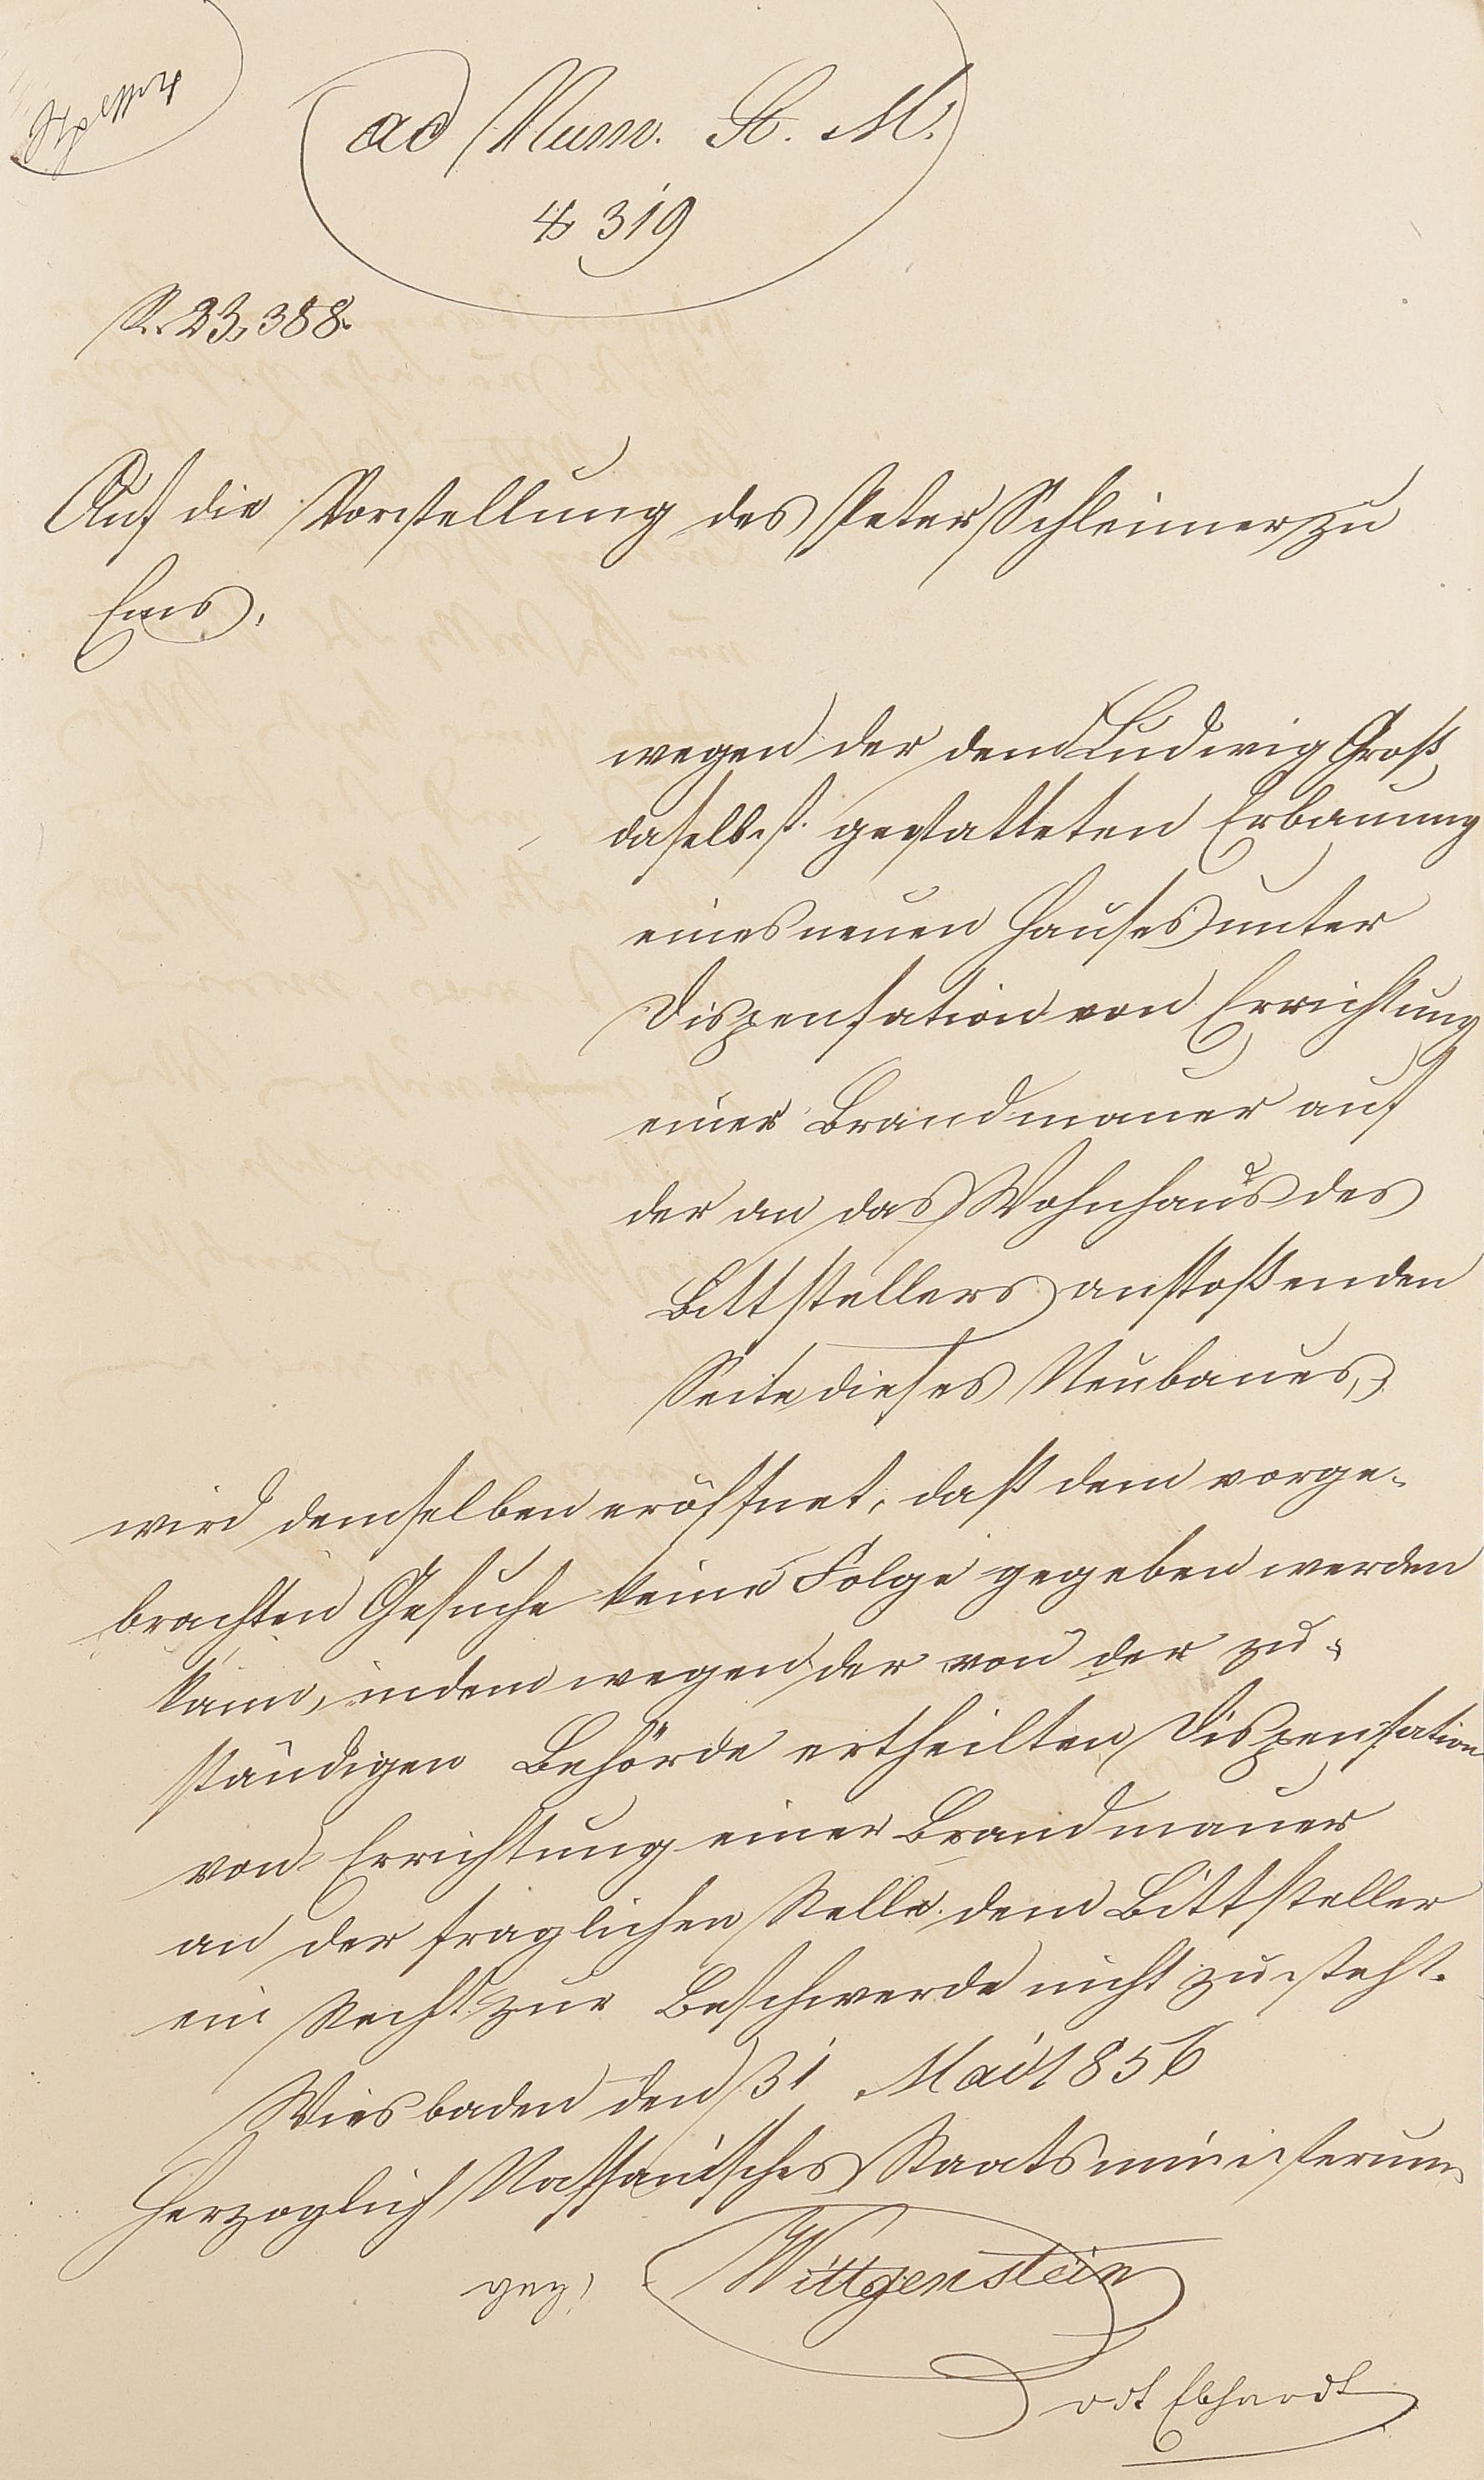 ad Num. St. M.
4319
R. 23,388.
Auf die Vorstellung des Peter Schleimer zu
Ems,
wegen der dem Ludwig Groß
daselbst gestatteten Erbauung
eines neuen Hauses unter
Dispensation von Errichtung
einer Brandmauer auf
der an das Wohnhaus des
Bittstellers anstoßenden
Seite dieses Neubaues,
wird demselben eröffnet, daß dem vorge-
brachten Gesuche keine Folge gegeben werden
kann, indem wegen der von der zu-
ständigen Behörde ertheilten Dispensation
von Errichtung einer Brandmauer
an der fraglichen Stelle dem Bittsteller
ein Recht zur Beschwerde nicht zusteht.
Wiesbaden den 31 Mai 1856
Herzoglich Nassauisches Staatsministerium
gez. Wittgenstein
vdt Ebhardt